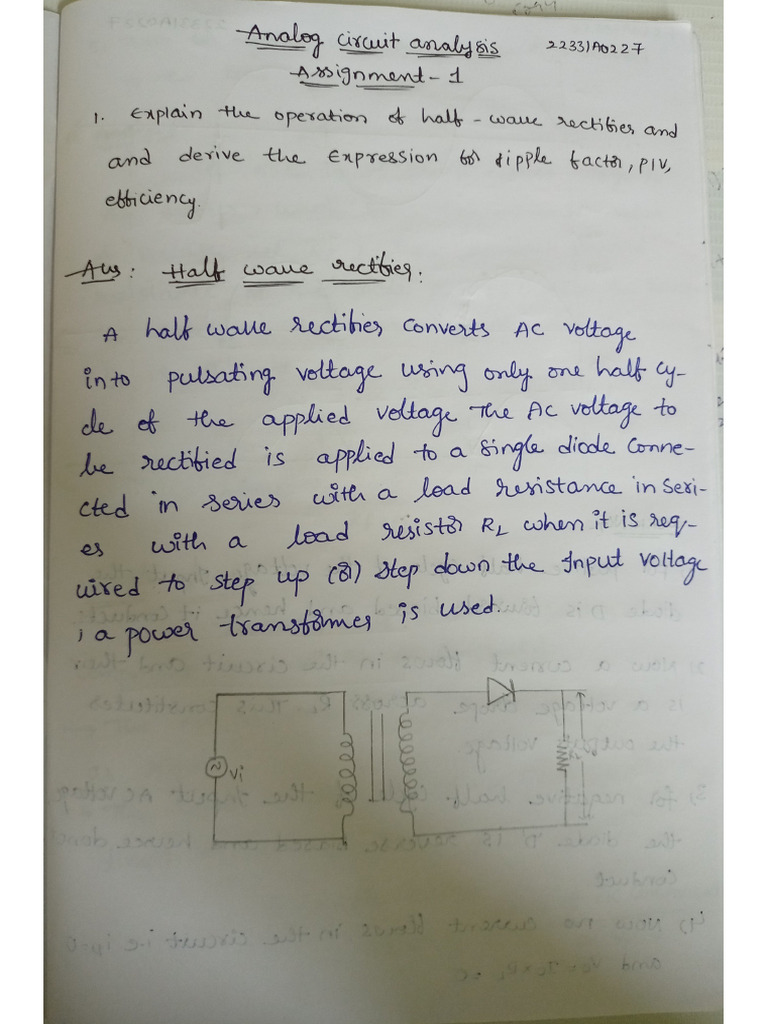 Analog circuit analysis 22331A0227
Assignment - 1
1. Explain the operation of half - wave rectifier and
and derive the Expression for ripple factor, PIV,
efficiency.
Ans : Half wave rectifier :
A half wave rectifier converts AC voltage
into pulsating voltage using only one half cy-
cle of the applied voltage The AC voltage to
be rectified is applied to a single diode Conne-
cted in series with a load resistance in seri-
es with a load resistor RL when it is req-
uired to step up (or) step down the Input voltage
, a power transformer is used.
Vi